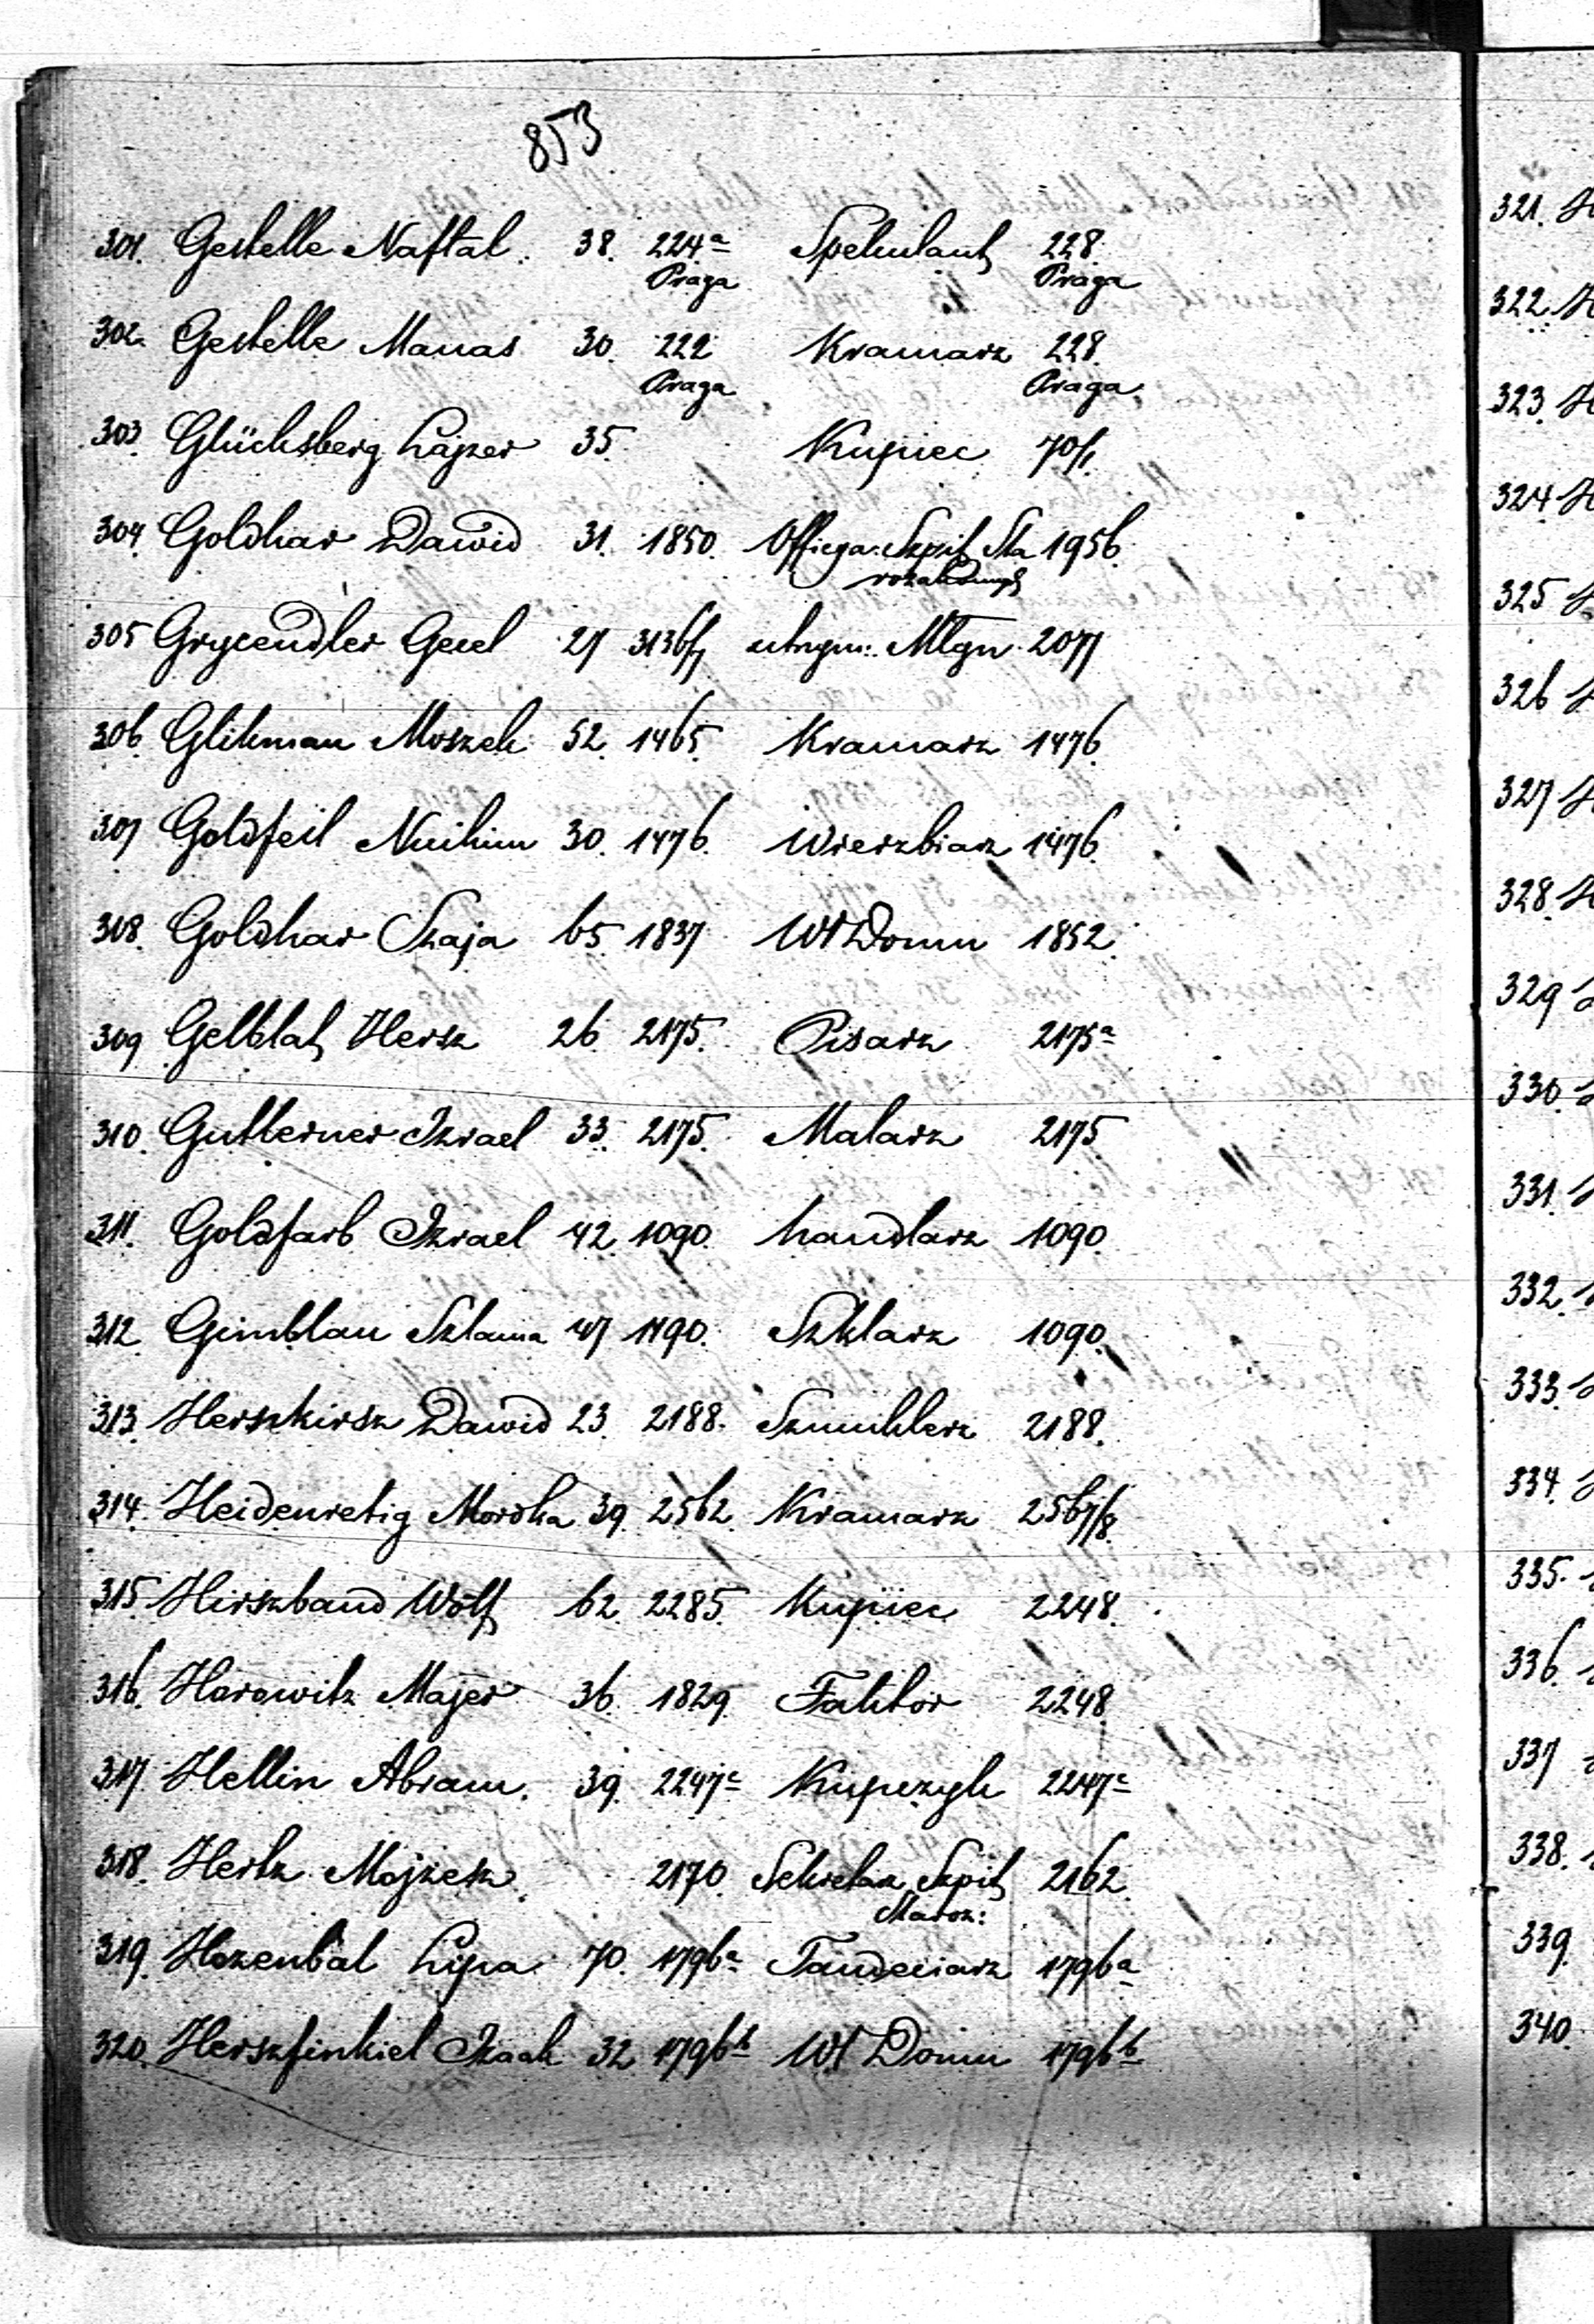 853
301. Gestelle Naftal. 38. 224a Spekulant 228.
Praga Praga
302. Gestelle Manas 30. 222 Kramarz 228.
Praga Praga
303. Glücksberg Lajzer 35. Kupiec 70/1.
304. Goldhar Dawid 31. 1850. Szpit Sta 1956.
rozakonnych
305 Grycendler Gecel 27 3136/7 utrzym: Mlyn 2077
306 Glikman Moszek 52. 1465. Kramarz 1476.
307 Goldfeil Nuihim 30. 1476. Wierzbiarz 1476.
308. Goldhar Szaja 65. 1837 Wł Domu 1852.
309 Gelblat Hersz 26. 2175. Pisarz 2175a
310. Gutterner Izrael 33. 2175. Malarz 2175.
311. Goldfarb Izrael 42. 1090. handlarz 1090.
312. Gimblau Szlama 47 1190. Szklarz 1090.
313. Herszkirsz Dawid 23. 2188. Szmuklerz 2188.
314. Heidenretig Mordka 39. 2562. Kramarz 2567/8.
315. Hirszband Wolf 62. 2285. Kupiec 2248.
316. Horowitz Majer 36. 1829 Faktor 2248.
317. Hellin Abram. 39. 2247c Kupczyk 2247c
318. Hertz Mojzesz. 2170. Sekretarz Szpit 2162.
Staroz:
319. Hozenbal Lipa 70. 1796a Tandeciarz 1796a
320. Herszfinkiel Izaak 32 1796b Wł Domu 1796b
321.
322
323
324
325
326
327
328.
329
330.
331.
332.
333.
334.
335.
336.
337
338.
339.
340.